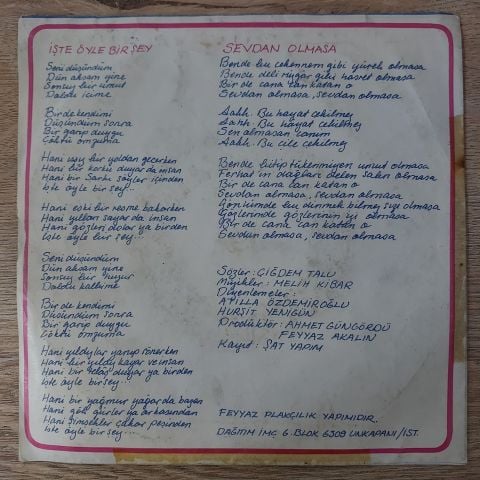 İŞTE ÖYLE BİR ŞEY
Seni düşündüm
Dün akşam yine
Sonsuz bir umut
Doldu içime
Bir de kendimi
Düşündüm sonra
Bir garip duygu
Çöktü omzuma
Hani ıssız bir yoldan geçerken
Hani bir korku duyar da insan
Hani bir şarkı söyler içinden
İşte öyle bir şey...
Hani eski bir resme bakarken
Hani yılları sayar da insan
Hani gözleri dolar ya birden
İşte öyle bir şey...
Seni düşündüm
Dün akşam yine
Sonsuz bir huzur
Doldu kalbime
Bir de kendimi
Düşündüm sonra
Bir garip duygu
Çöktü omzuma
Hani yıldızlar yanıp sönerken
Hani bir yıldız kayar ve insan
Hani bir telaş duyar ya birden
İşte öyle bir şey...
Hani bir yağmur yağar da bazen
Hani gök gürler ya arkasından
Hani şimşekler çakar peşinden
İşte öyle bir şey...
SEVDAN OLMASA
Bende bu cehennem gibi yürek olmasa
Bende deli rüzgar gibi hasret olmasa
Bir de cana can katan o
Sevdan olmasa, sevdan olmasa
Sahh. Bu hayat çekilmez
Sahh. Bu hayat çekilmez
Sen olmasan canım
Sahh. Bu çile çekilmez
Bende bitip tükenmiyen umut olmasa
Ferhat'ın dağları delen sabrı olmasa
Bir de cana can katan o
Sevdan olmasa, sevdan olmasa
Gönlümde bu dinmek bilmez sızı olmasa
Gözlerimde gözlerinin izi olmasa
Bir de cana can katan o
Sevdan olmasa, sevdan olmasa
Sözler: ÇİĞDEM TALU
Müzikler: MELİH KİBAR
Düzenlemeler:
ATİLLA ÖZDEMİROĞLU
HURŞİT YENİGÜN
Prodüktör: AHMET GÜNGÖRDÜ
FEYYAZ AKALIN
Kayıt: ŞAT YAPIM
FEYYAZ PLAKÇILIK YAPIMIDIR..
DAĞITIM İMÇ 6. BLOK 6309 UNKAPANI/İST.